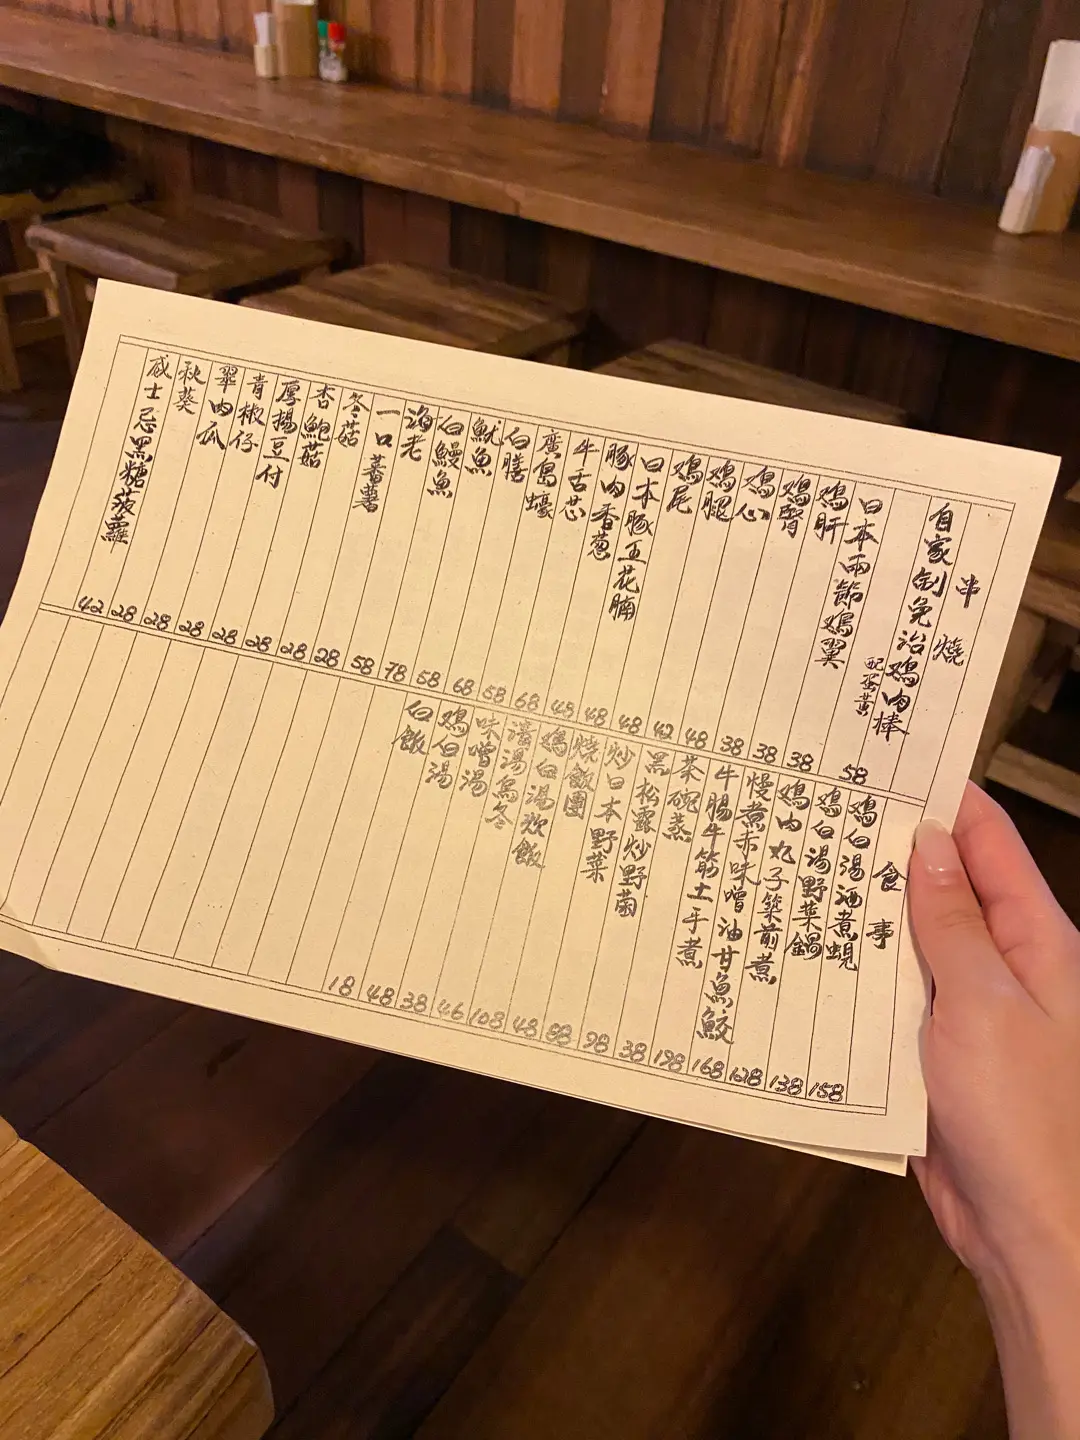 串燒
自家制免治鸡肉棒 配蛋黃 58
日本兩節鸡翼 38
鸡肝 38
鸡腎 38
鸡心 48
鸡腿 42
鸡尾 48
日本豚五花腩 48
豚肉香葱 48
牛舌芯 68
廣島蠔 58
白膳 68
魷魚 58
白鰻魚 78
海老 58
一口蕃薯 28
冬菇 28
杏鲍菇 28
厚揚豆付 28
青椒仔 28
翠肉瓜 28
秋葵 28
威士忌黑糖菠蘿 42
食事
鸡白湯酒煮蜆 158
鸡白湯野菜鍋 138
鸡肉丸子築前煮 128
慢煮赤味噌油甘魚鮫 168
牛腸牛筋土手煮 198
茶碗蒸 38
黑松露炒野菌 98
炒日本野菜 88
燒飯團 48
鸡白湯炊飯 108
湯烏冬 46
味噌湯 38
鸡白湯 48
白飯 18